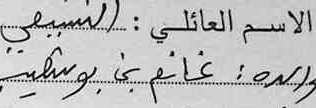 الاسم العائلي : النسيفي
والده : غانم بن بوشتى